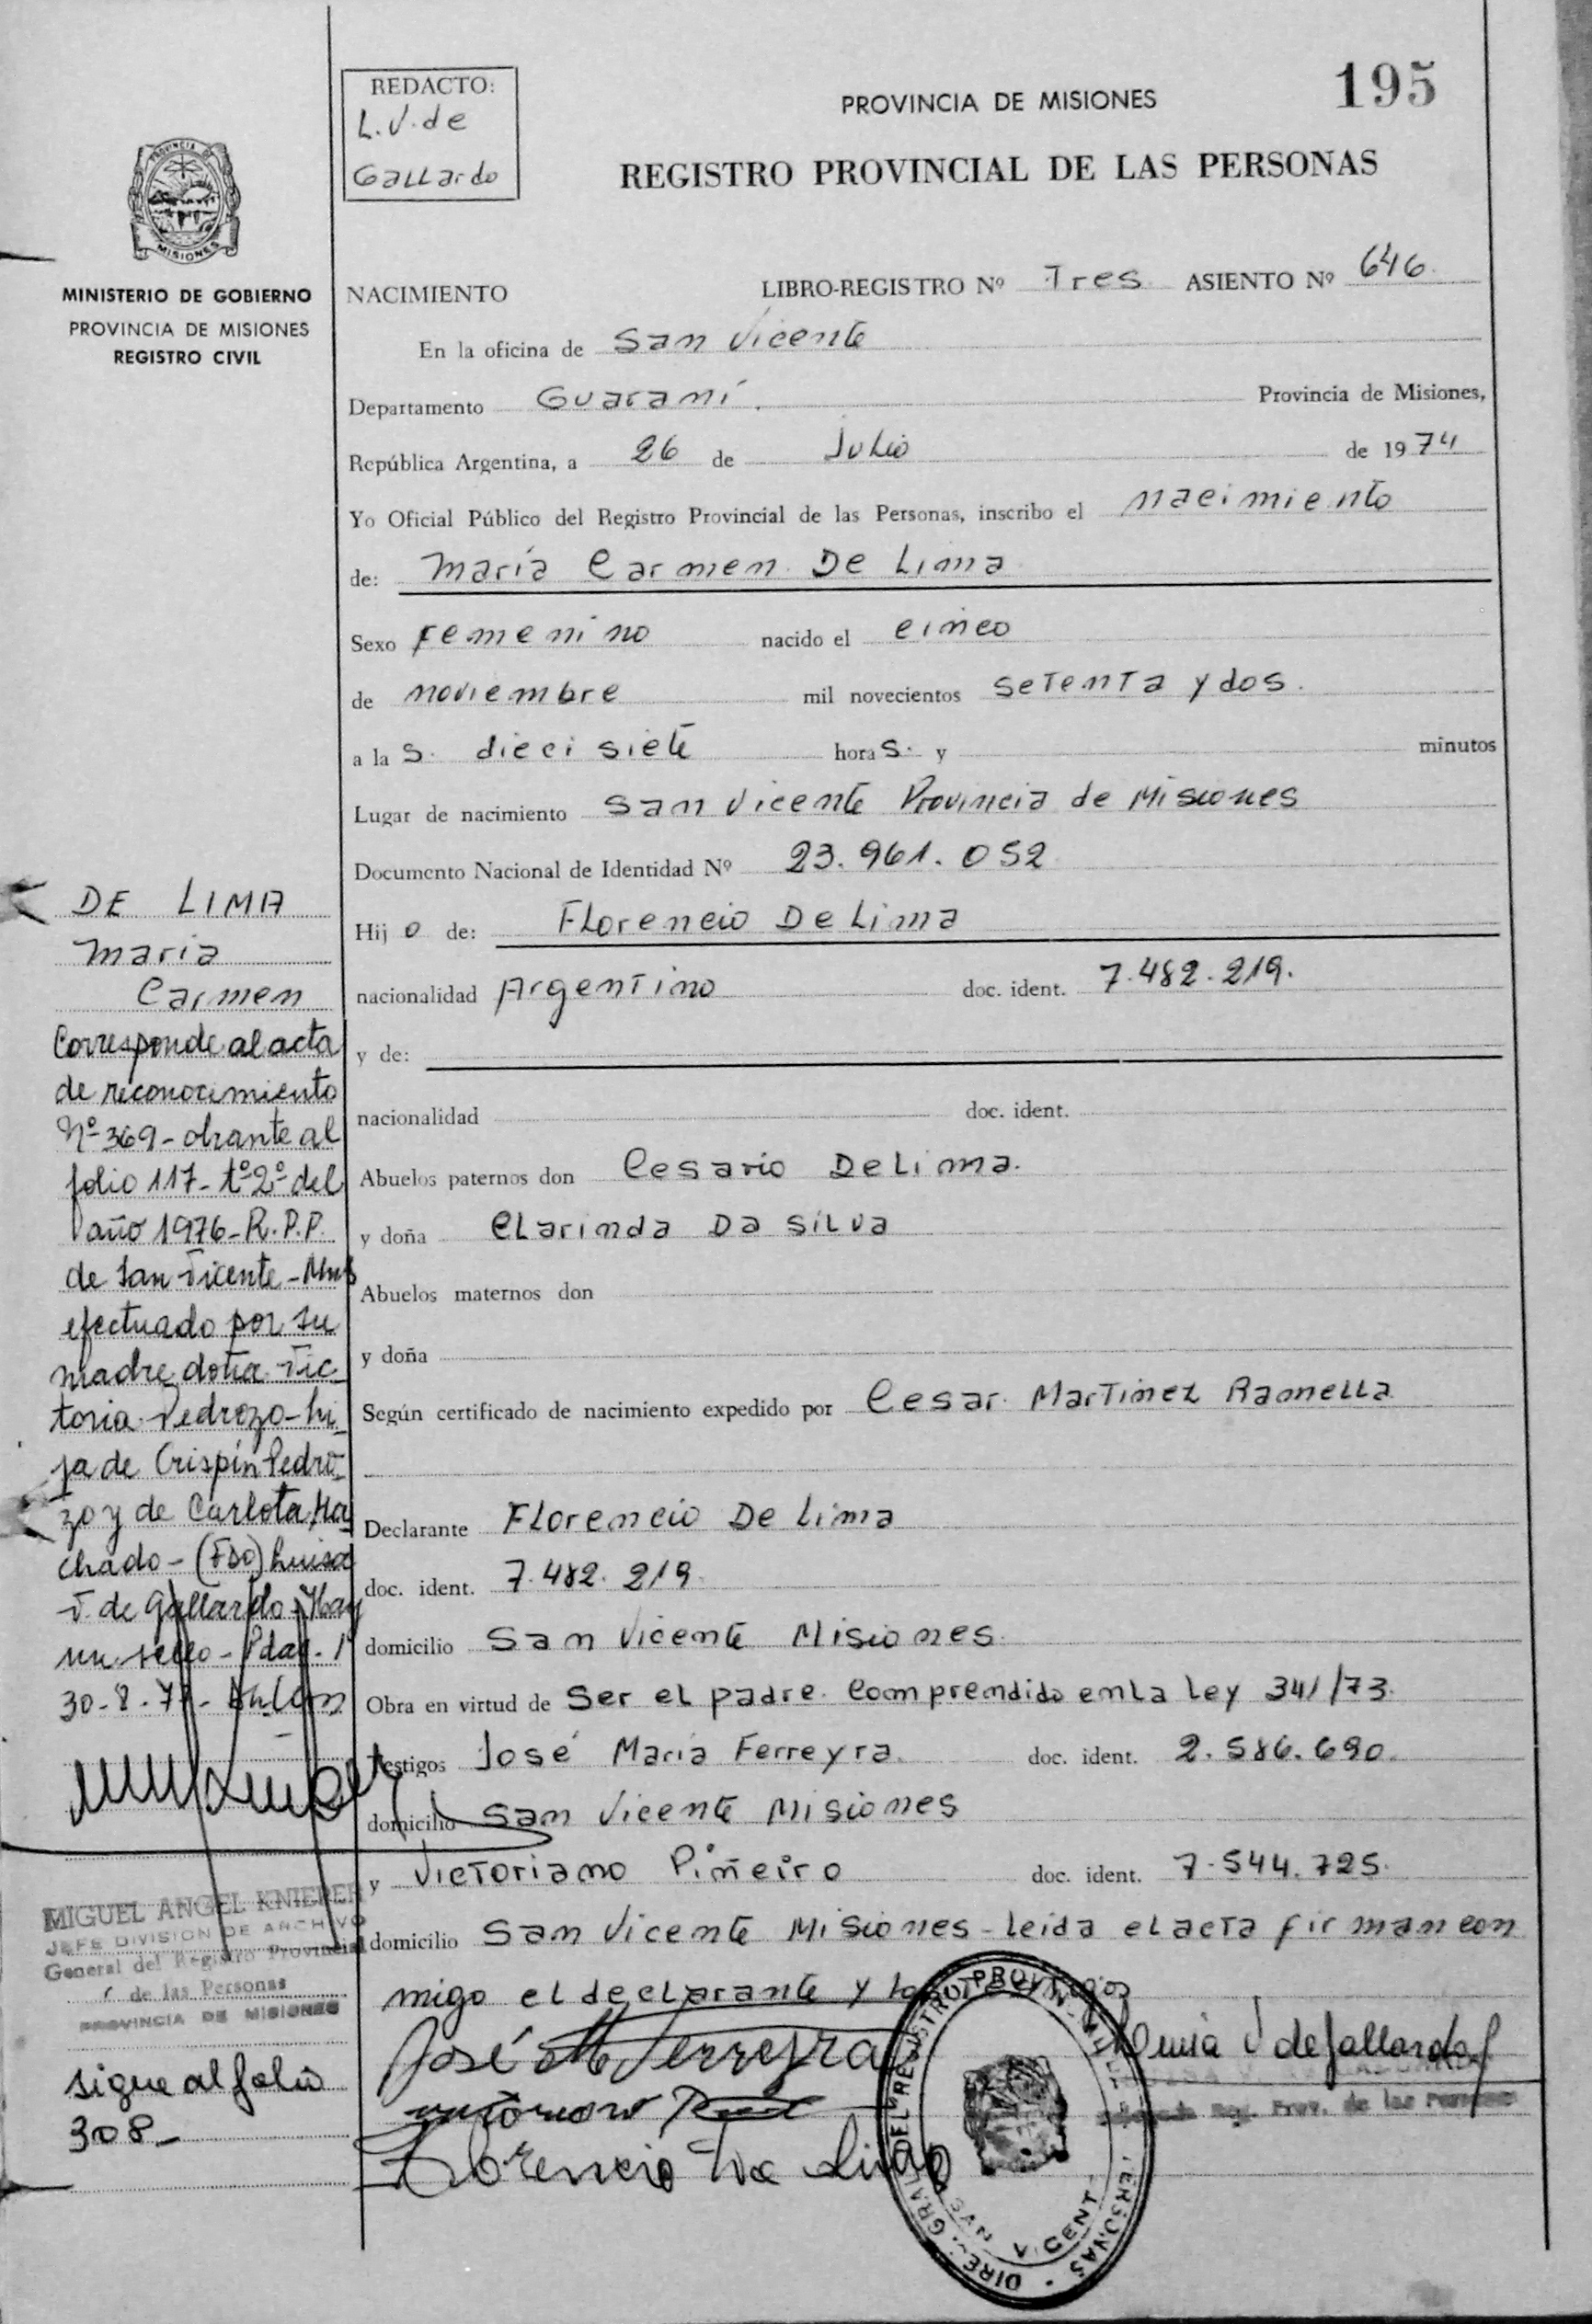 REDACTO:
L.V. de
Gallardo
PROVINCIA DE MISIONES
195
REGISTRO PROVINCIAL DE LAS PERSONAS
PROVINCIA DE
MISIONES
MINISTERIO DE GOBIERNO
PROVINCIA DE MISIONES
REGISTRO CIVIL
NACIMIENTO LIBRO-REGISTRO Nº Tres ASIENTO Nº 646.
En la oficina de San Vicente
Departamento Guaraní. Provincia de Misiones,
República Argentina, a 26 de Julio de 1974
Yo Oficial Público del Registro Provincial de las Personas, inscribo el nacimiento
de: María Carmen De Lima
Sexo Femenino nacido el cinco
de noviembre mil novecientos setenta y dos.
a las. dieci siete horas. y minutos
Lugar de nacimiento San Vicente Provincia de Misiones
Documento Nacional de Identidad Nº 23.961.052
Hijo de: Florencio De Lima
nacionalidad Argentino doc. ident. 7.482.219.
y de:
nacionalidad doc. ident.
Abuelos paternos don Cesario De Lima.
y doña Clarinda Da Silva
Abuelos maternos don
y doña
Según certificado de nacimiento expedido por Cesar Martinez Ramella
Declarante Florencio De Lima
doc. ident. 7.482.219.
domicilio San Vicente Misiones.
Obra en virtud de Ser el padre. Comprendido en la Ley 341/73.
Testigos José María Ferreyra. doc. ident. 2.586.690.
domicilio San Vicente Misiones
y Victoriano Piñeiro doc. ident. 7.544.725.
domicilio San Vicente Misiones - leida el acta firman con
migo el declarante y los testigos
José M Ferreyra
Florencio De Lima
Luisa V de Gallardo
Reg. Prov. de las Personas
DE LIMA
Maria
Carmen
Corresponde al acta
de reconocimiento
Nº 369 - obrante al
folio 117 - tº 2º del
año 1976 - R.P.P.
de San Vicente - Mnes
efectuado por su
madre doña Vic
toria Pedrozo - hi
ja de Crispín Pedro
zo y de Carlota Ma
chado - (FDO) Luisa
V. de Gallardo - Hay
un sello - Pdas.
MIGUEL ANGEL KNIERER
JEFE DIVISION DE ARCHIVO
General del Registro Provincial
de las Personas
PROVINCIA DE MISIONES
sigue al folio
308 -